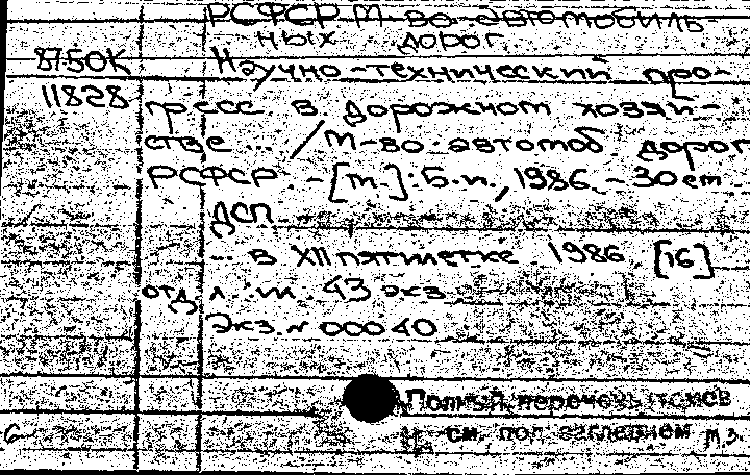 РСФСР М-во автомобиль-
ных дорог.
87-50К Научно-технический про-
11828 гресс в дорожном хозяй-
стве ... / М-во автомоб дорог
РСФСР - [М.]: Б.и., 1986. - 30 см.
ДСП
... В XII пятилетке. 1986 [16]
отд. л.: ил. 43 экз
Экз. № 00040
Полный перечень томов
см. под заглавием М.З.
6